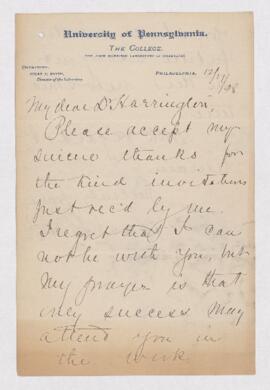 University of Pennsylvania.
The College.
Department.
Edgar F. Smith,
Director of the Laboratory.
Philadelphia,
My dear Dr Harrington,
Please accept my
sincere thanks for
the kind invitation
just rec'd by me.
I regret that I can
not be with you, but
my prayer is that
every success may
attend you in
the work